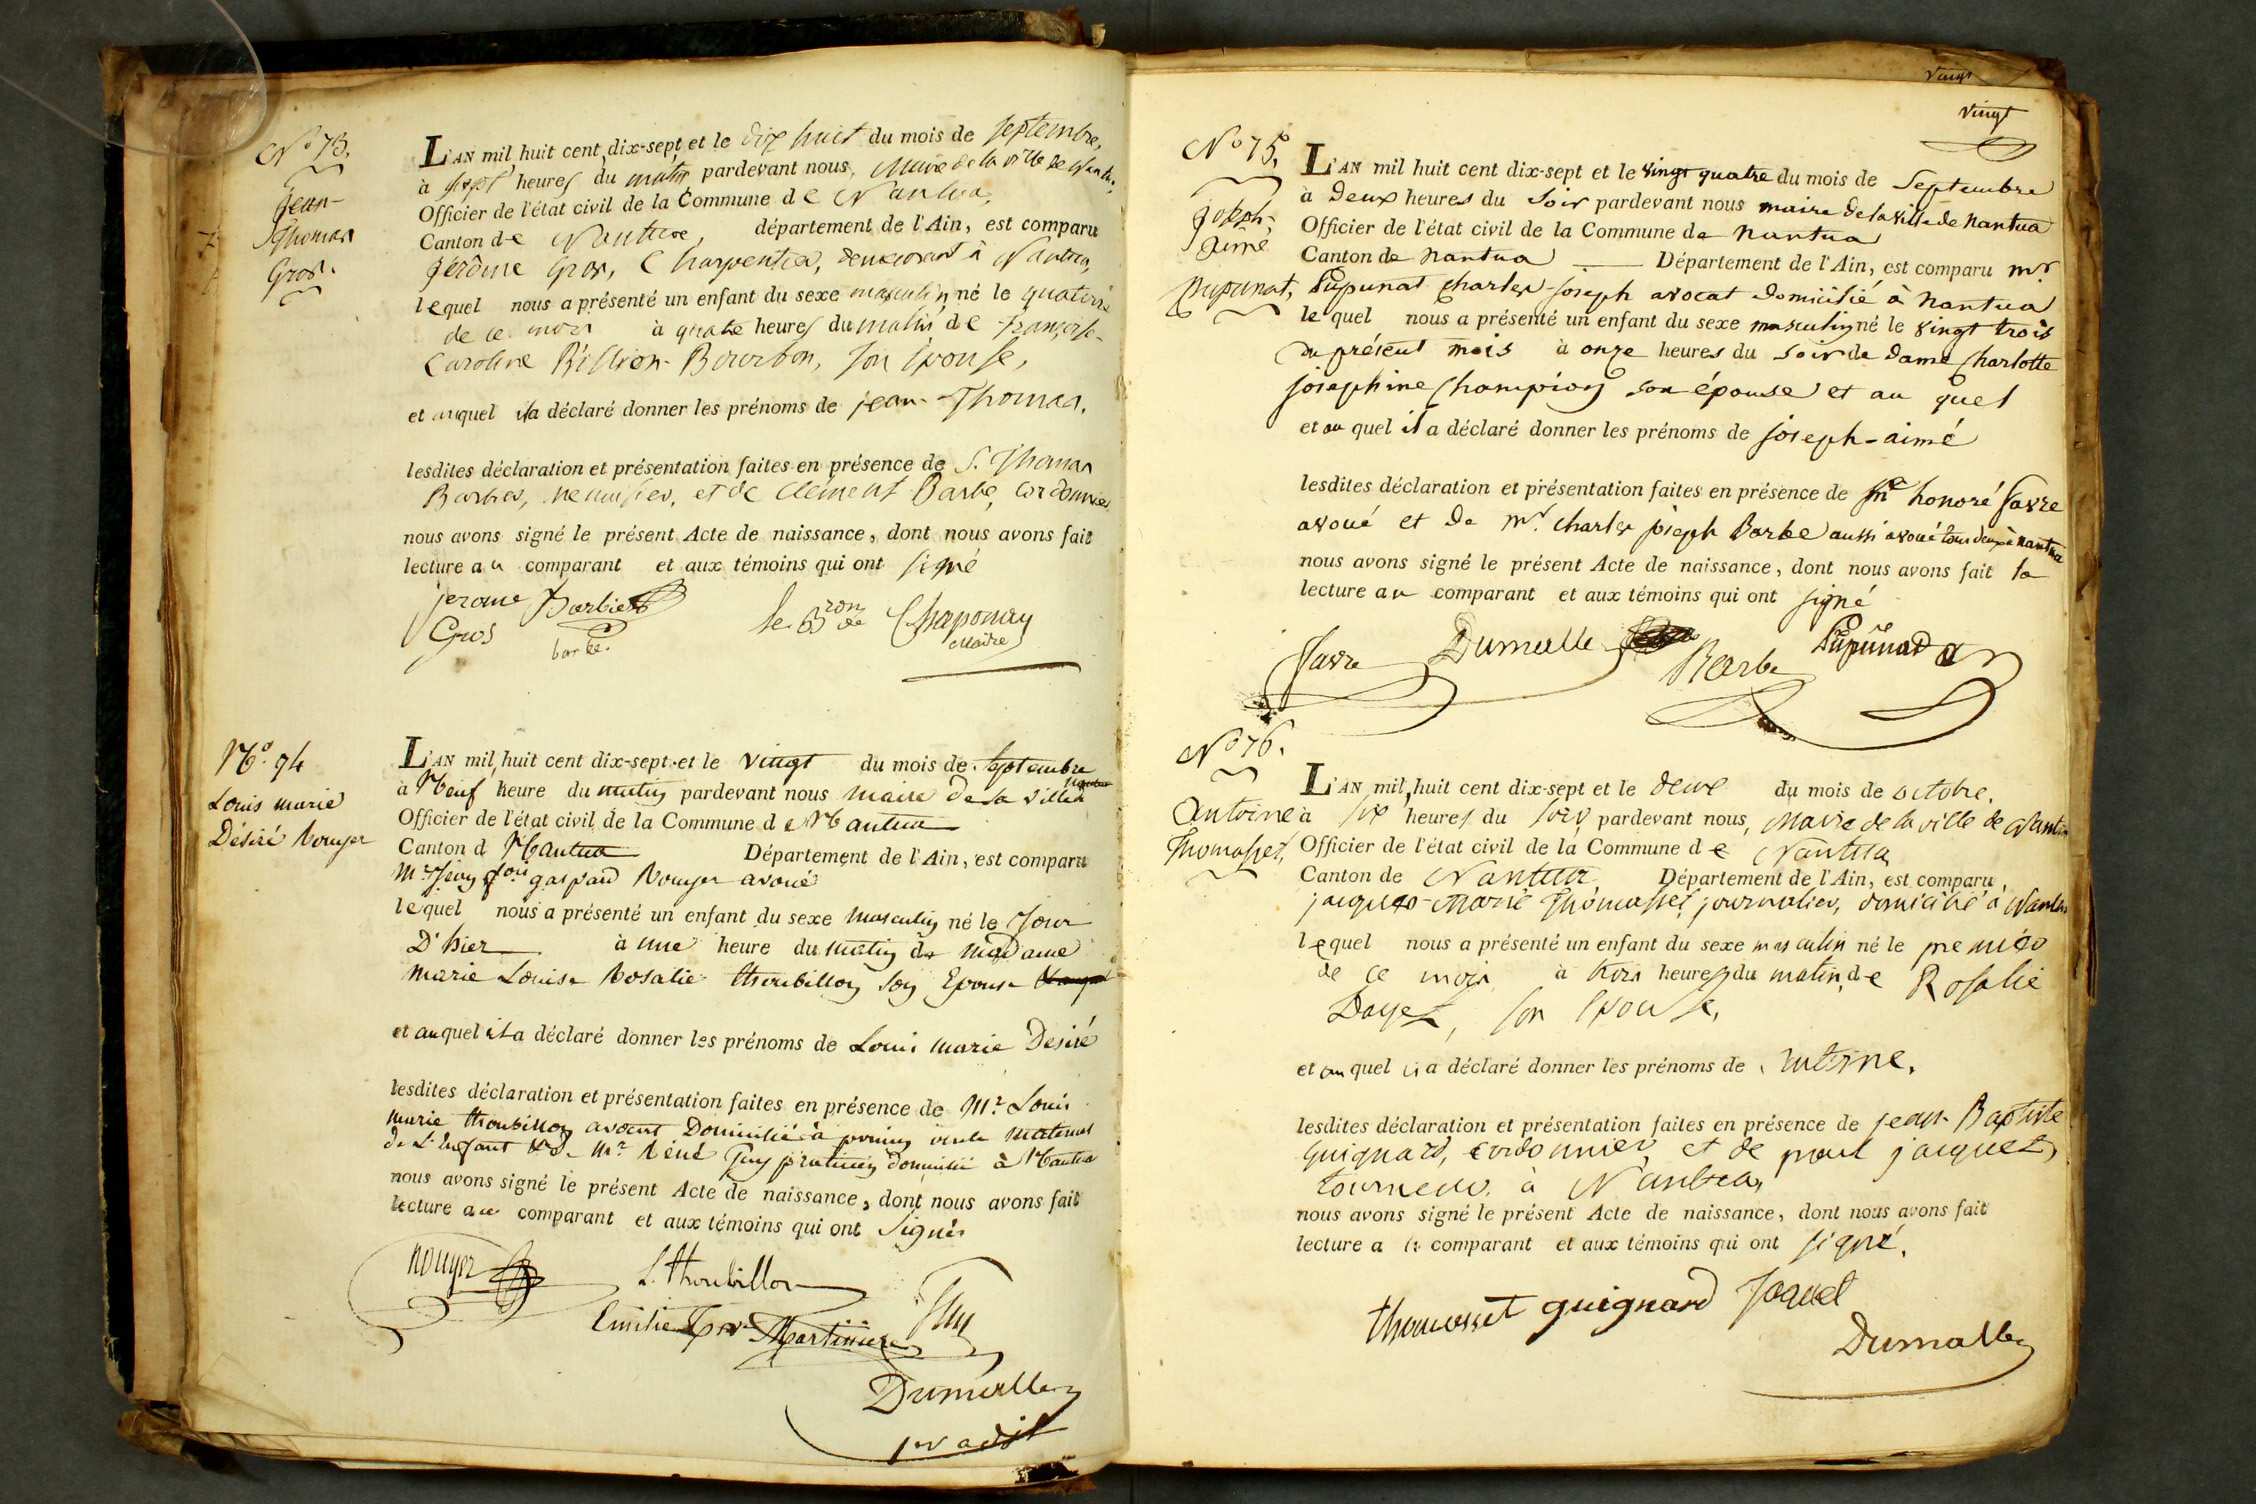 No 73.
Jean-
Thomas
Gros.
L'AN mil huit cent dix-sept et le dix huit du mois de septembre,
à sept heures du matin pardevant nous, Maire de la ville de Nantua,
Officier de l'état civil de la Commune de Nantua,
Canton de Nantua, département de l'Ain, est comparu
jérôme Gros, Charpentier, demeurant à Nantua,
lequel nous a présenté un enfant du sexe masculin né le quatorze
de ce mois à quatre heures du matin de françoise-
Caroline Billion-Bourbon, son épouse,
et auquel il a déclaré donner les prénoms de jean-Thomas.
lesdites déclaration et présentation faites en présence de S. Thomas
Barbier, menuisier, et de Clément Barbe, Cordonnier
nous avons signé le présent Acte de naissance, dont nous avons fait
lecture au comparant et aux témoins qui ont signé
jerome Barbier
Gros barbe.
le Bron de Chaponay
Maire
No. 94
Louis marie
Désiré Rouyer
L'AN mil huit cent dix-sept et le vingt du mois de septembre
à Neuf heure du matin pardevant nous maire de la ville de
Officier de l'état civil de la Commune de Nantua
Canton d Nantua Département de l'Ain, est comparu
Mr gaspard Rouyer avoué
lequel nous a présenté un enfant du sexe masculin né le Jour
D'hier à une heure du matin de madame
marie Louise Rosalie thoubillon son Epouse
et auquel il a déclaré donner les prénoms de Louis marie Desiré
lesdites déclaration et présentation faites en présence de Mr Louis
marie thoubillon avocat Domicilié à oncle maternel
de L'Enfant & de Mr René Guy praticien domicilié à Nantua
nous avons signé le présent Acte de naissance, dont nous avons fait
lecture au comparant et aux témoins qui ont Signés
Rouyer
L. thoubillon
Emilie Martiniere Guy
Dumolle
1er adjt
vingt
vingt
No 75.
joseph-
aimé
Pupunat,
L'AN mil huit cent dix-sept et le vingt quatre du mois de Septembre
à Deux heures du Soir pardevant nous maire de la ville de Nantua
Officier de l'état civil de la Commune de Nantua
Canton de Nantua Département de l'Ain, est comparu mr
Pupunat Charles-joseph avocat domicilié à Nantua
le quel nous a présenté un enfant du sexe masculin né le vingt trois
du présent mois à onze heures du soir de dame Charlotte
josephine Champion son épouse et au quel
et au quel il a déclaré donner les prénoms de joseph-aimé
lesdites déclaration et présentation faites en présence de honoré favre
avoué et de mr. charles joseph Barbe aussi avoué tous deux à Nantua
nous avons signé le présent Acte de naissance, dont nous avons fait la
lecture au comparant et aux témoins qui ont signé
favre Dumolle Barbe Pupunat
No 76.
antoine
Thomasset,
L'AN mil huit cent dix-sept et le deux du mois de octobre,
à six heures du soir pardevant nous, Maire de la ville de Nantua
Officier de l'état civil de la Commune de Nantua
Canton de Nantua Département de l'Ain, est comparu
jacques-Marie Thomasset, journalier, domicilié à Nantua
lequel nous a présenté un enfant du sexe masculin né le premier
de ce mois à trois heures du matin de Rosalie
Doyet, son épouse,
et au quel il a déclaré donner les prénoms de Antoine.
lesdites déclaration et présentation faites en présence de jean-Baptiste
Guignard, cordonnier, et de paul jacquet,
tourneur, à Nantua,
nous avons signé le présent Acte de naissance, dont nous avons fait
lecture a comparant et aux témoins qui ont signé.
thomasset guignard Jaquet
Dumolle